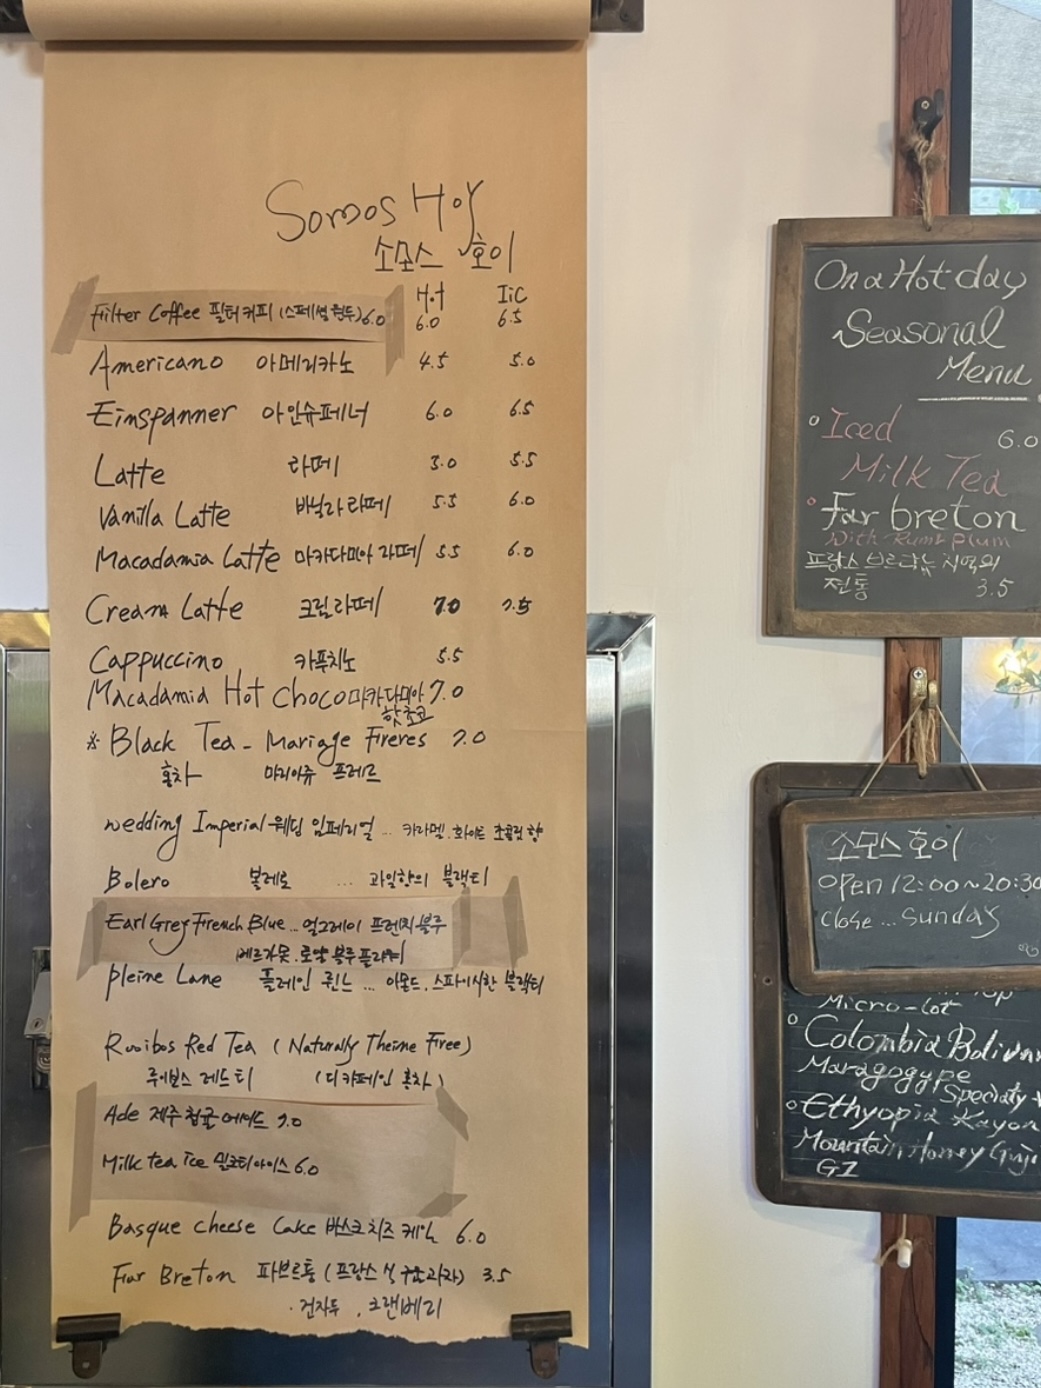 Somos Hoy
소모스 호이
Hot Ice
Filter Coffee 필터커피 (스페셜원두) 6.0 6.0 6.5
Americano 아메리카노 4.5 5.0
Einspanner 아인슈페너 6.0 6.5
Latte 라떼 5.5
Vanilla Latte 바닐라라떼 5.5 6.0
Macadamia Latte 마카다미아 라떼 5.5 6.0
Cream Latte 크림라떼 7.0 7.5
Cappuccino 카푸치노 5.5
Macadamia Hot Choco 마카다미아 7.0
핫초코
※ Black Tea - Mariage Freres 7.0
홍차 마리아쥬 프레르
Wedding Imperial 웨딩 임페리얼 ... 카라멜. 화이트 초콜릿 향
Bolero 볼레로 ... 과일향의 블랙티
Earl Grey French Blue ... 얼그레이 프렌치블루
베르가못. 로얄 블루 플라워
Pleine Lane 플레인 륀느 ... 아몬드. 스파이시한 블랙티
Rooibos Red Tea (Naturally Theine Free)
루이보스 레드티 (디카페인 홍차)
Ade 제주청귤에이드 7.0
Milk tea Ice 밀크티아이스 6.0
Basque cheese Cake 바스크치즈 케익 6.0
Far Breton 파브르통 (프랑스식 구운과자) 3.5
· 건자두 . 크랜베리
On a Hot day
Seasonal
Menu
Iced 6.0
Milk Tea
Far breton
With Rum Plum
프랑스 브르타뉴 지역의
전통 3.5
소모스 호이
open 12:00~20:30
close ... Sunday
Micro-lot
Colombia
Maragogype
Specialty
Ethyopia Kayon
Mountain Honey Guji
G1